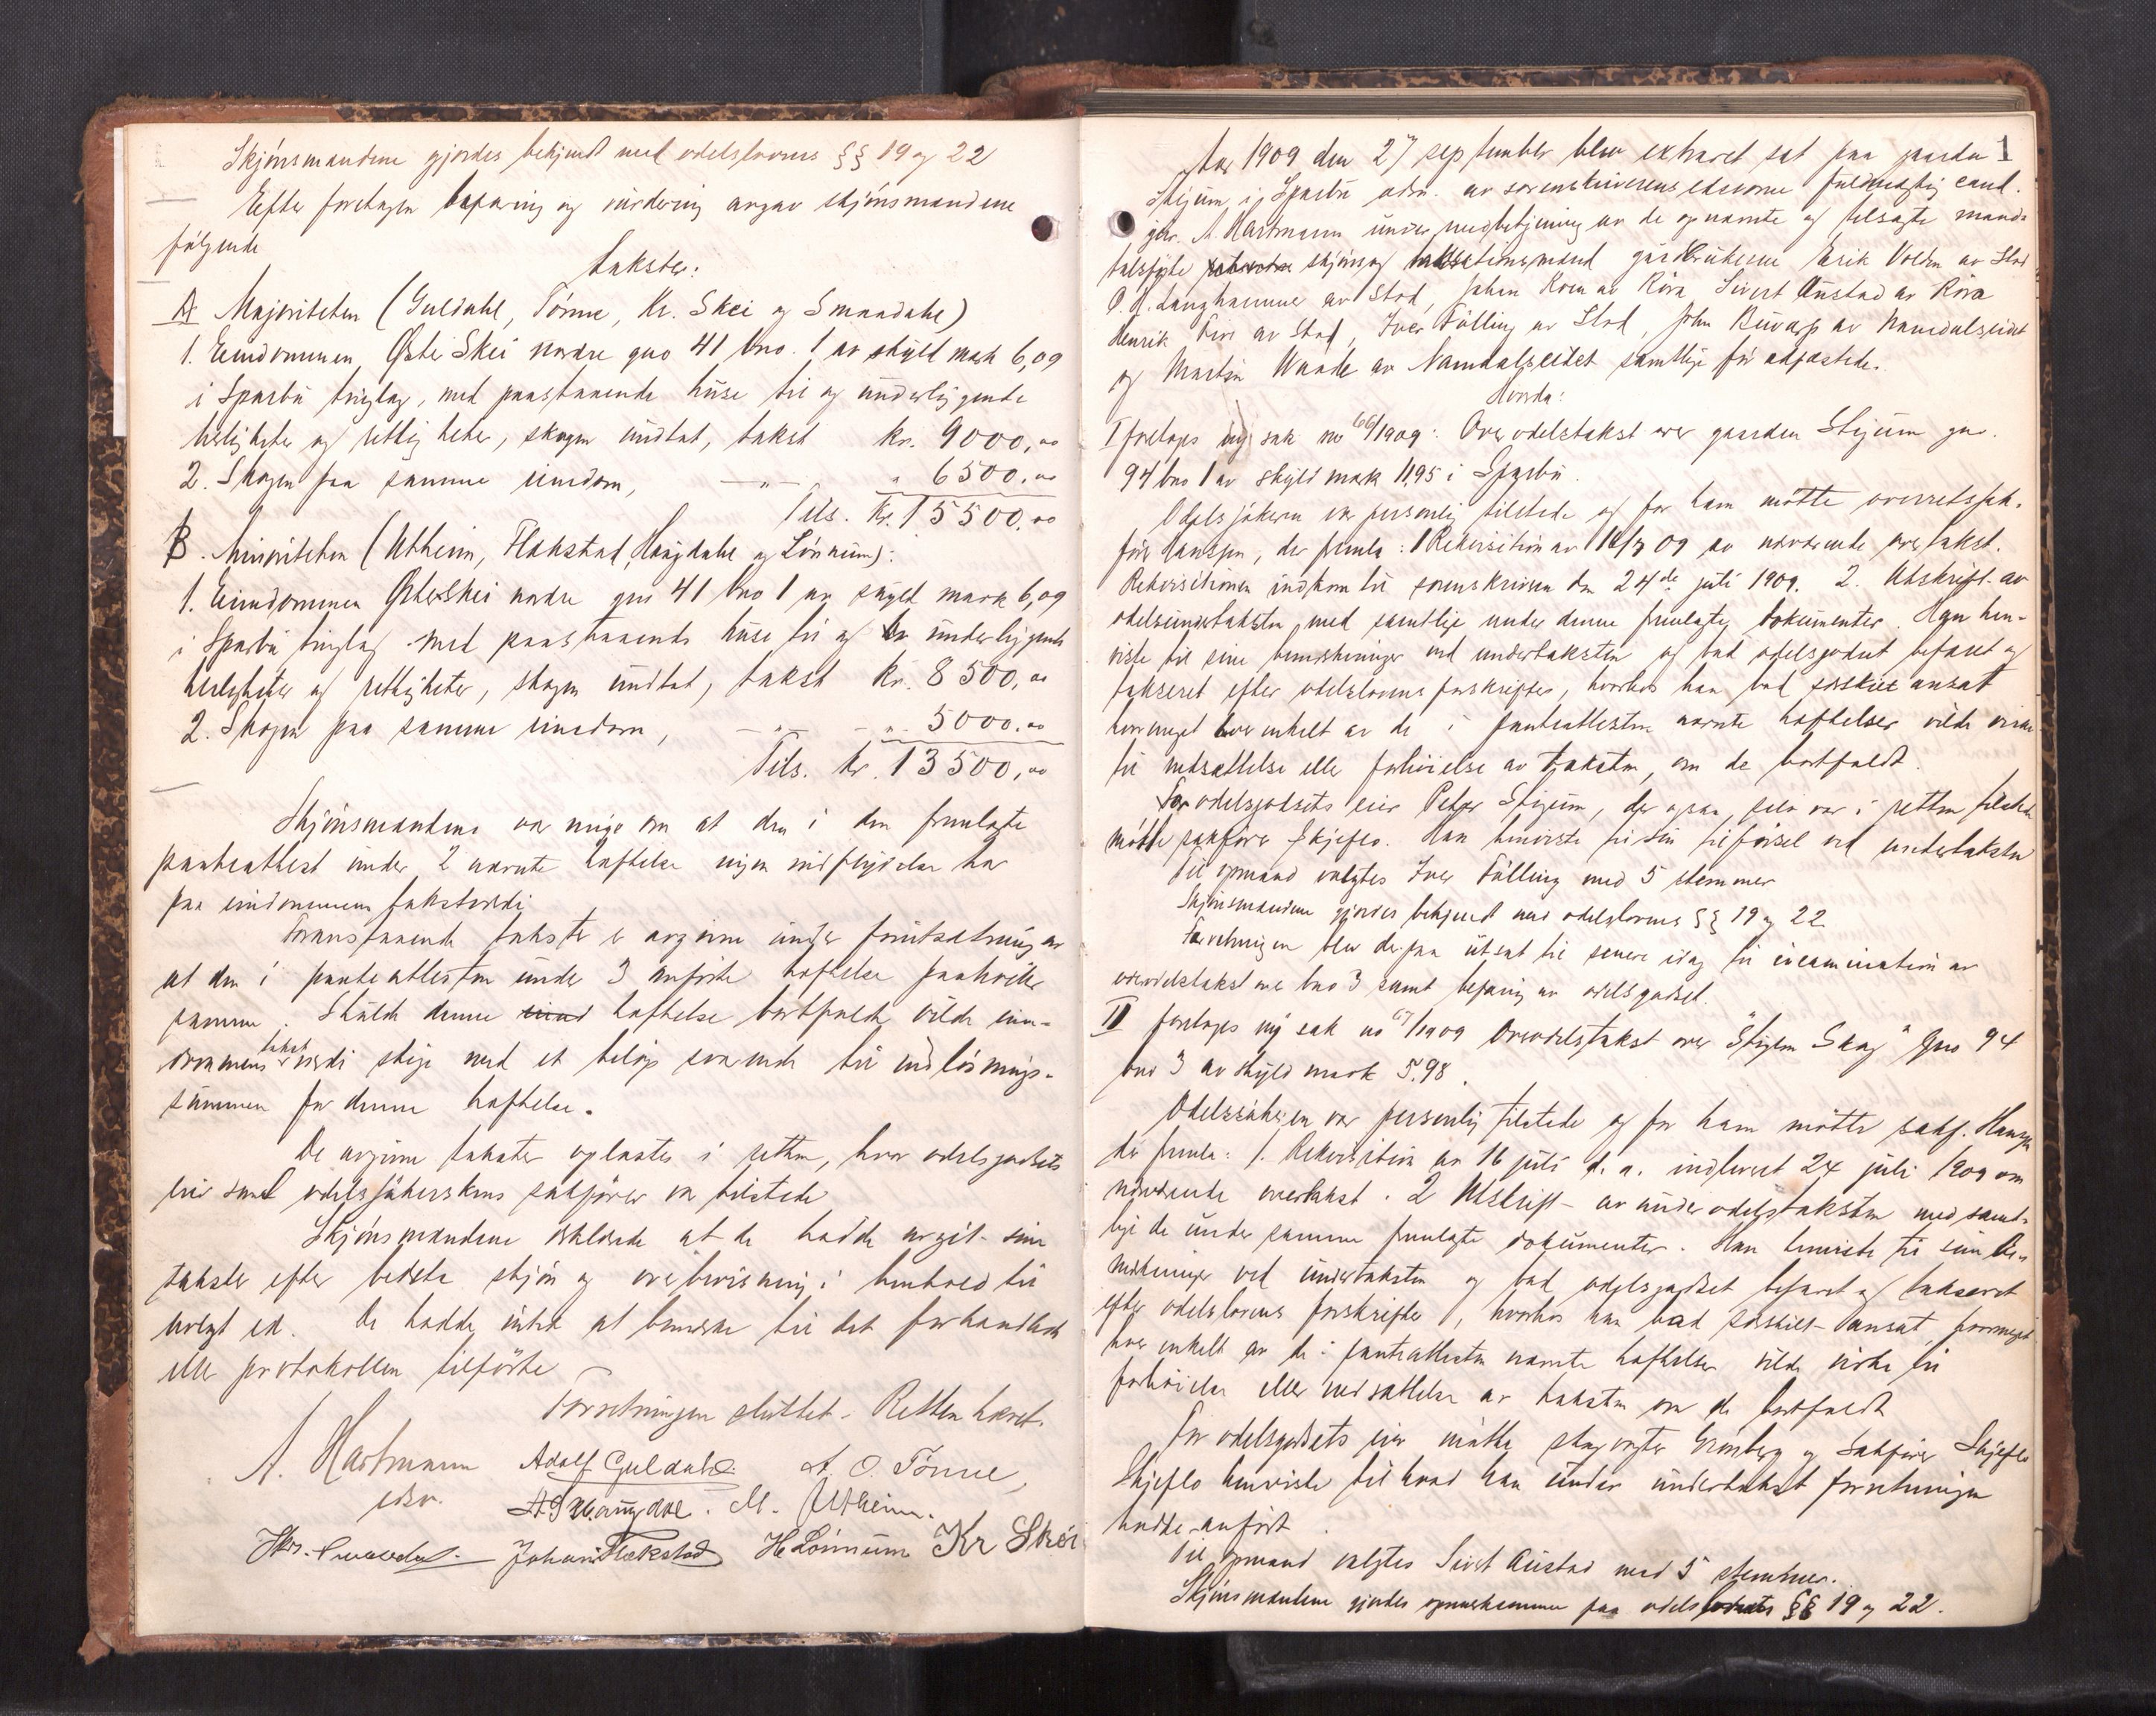 Skjönsmændene gjordes bekjendt med odelslovens §§ 19 og 22
Efter foretagen befaring og vürdering avgav skjönsmændene
fölgende
takster:
A Majoriteten (Guldahl, Tönne, Kr. Skei og Smaadahl)
1. Eiendommen Öster Skei nordre gno 41 bno. 1 av skyld mark 6,09
i Sparbu tinglag, med paastaaende hüse til og ünderliggende
herligheter og rettigheter, skogen ündtat, takst kr. 9000,00
2. Skogen paa samme eiendom, —"— " 6500.00
Tils. Kr. 15500,00
B. Minoriteten (Utheim, Flækstad, Haugdahl og Lönnüm):
1. Eiendommen Österskei nordre gno 41 bno 1 av skyld mark 6,09
i Sparbu tinglag med paastaaende hüse til og ünderliggende
herligheter og rettigheter, skogen ündtat, takst kr. 8500,00
2. Skogen paa samme eiendom, —"— " 5000.00
Tils. kr. 13500,00
Skjönsmændene var enige om at den i den fremlagte
panteattest ünder 2 nævnte heftelse ingen indflydelse har
paa eiendommens takstverdi.
Foranstaaende takster er avgivne ünder forütsætning av
at den i panteattesten ünder 3 anförte heftelse paahviler
samme. Skülde denne heftelse bortfalde vilde eien-
dommens takstverdi stige med et belöp svarende til indlösnings-
sümmen for denne heftelse.
De avgivne takster oplæstes i retten, hvor odelsgodsets
eier samt odelssökerskens sakförer var tilstede
Skjönsmændene erklærte at de hadde avgit sine
takster efter bedste skjön og overbevisning i henhold til
avlagt ed. De hadde intet at bemerke til det forhandlede
eller protokollen tilförte
Forretningen slüttet. Retten hævet.
A. Hartmann Adolf Guldahl. A. O. Tönne,
edsv. A. Haugdal. M. Utheim.
Johan Flækstad H Lönnüm Kr Skei
1
Aar 1909 den 27 september blev extraret sat paa gaarden
Stigum i Sparbu adm. av sorenskriverens edsvorne fuldmægtig cand.
jur. A. Hartmann under medbetjening av de opnævnte og tilsagte mands
talsförte skjöns og taksationsmænd gardbrukerne Erik Volden av Stod
O. A. Langhammer av Stod, Johan Koen av Röra Sivert Austad av Röra
Henrik Five av Stod, Iver Fölling av Stod John Buvarp av Namdalseidet
og Martin Waade av Namdalseidet samtlige för edfæstede.
Hvorda:
I foretoges ny sak no 66/1909: Overodelstakst over gaarden Stigum gno.
94 bno 1 av skyld mark 11,95 i Sparbu.
Odelssökeren var personlig tilstede og for ham mötte overretssak-
förer Hanssen, der fremla: 1 Rekvisition av 16/7 09 av nærværende overtakst.
Rekvisitionen indkom til sorenskriveren den 24de juli 1909. 2. Utskrift av
odelsundertaksten med samtlige under denne fremlagte dokümenter. Han hen-
viste til sine bemerkninger ved undertaksten og bad odelsgodset befaret og
takseret efter odelslovens forskrifter, hvorhos han bad særskilt ansat
hvormeget hver enkelt av de i panteattesten nævnte heftelser vilde virke
til nedsættelse eller forhöielse av taksten, om de bortfaldt.
For odelsgodsets eier Peter Stigum, der ogsaa selv var i retten tilstede
mötte sakförer Skjeflo. Han henviste til sin tilförsel ved undertaksten
Til opmand valgtes Iver Fölling med 5 stemmer
Skjönsmændene gjordes bekjendt med odelslovens §§ 19 og 22
Forretningen blev derpaa ütsat til senere idag til examination av
overodelstakst over bno 3 samt befaring av odelsgodset.
II foretoges ny sak no 67/1909 Overodelstakst over "Stigum Skog" gno 94
bno 3 av skyld mark 5.98.
Odelssökeren var personlig tilstede og for ham mötte sakf. Hanssen
der fremla: 1. Rekvisition av 16 juli d. a. indleveret 24 juli 1909 om
nærværende overtakst. 2 Utskrift av ünderodelstaksten med samt-
lige de ünder samme fremlagte dokümenter. Han henviste til sine be-
merkninger ved ündertaksten og bad odelsgodset befaret og takseret
efter odelslovens forskrifter, hvorhos han bad særskilt ansat, hvormeget
hver enkelt av de i panteattesten nævnte heftelser vilde virke til
forhöielse eller nedsættelse av taksten om de bortfaldt
For odelsgodsets eier mötte skogvogter Grönberg og sakförer Skjeflo
Skjeflo henviste til hvad han ünder ündertakst forretningen
hadde anfört.
Til opmand valgtes Sivert Aüstad med 5 stemmer.
Skjönsmændene gjordes opmerksomme paa odelslovens §§ 19 og 22.